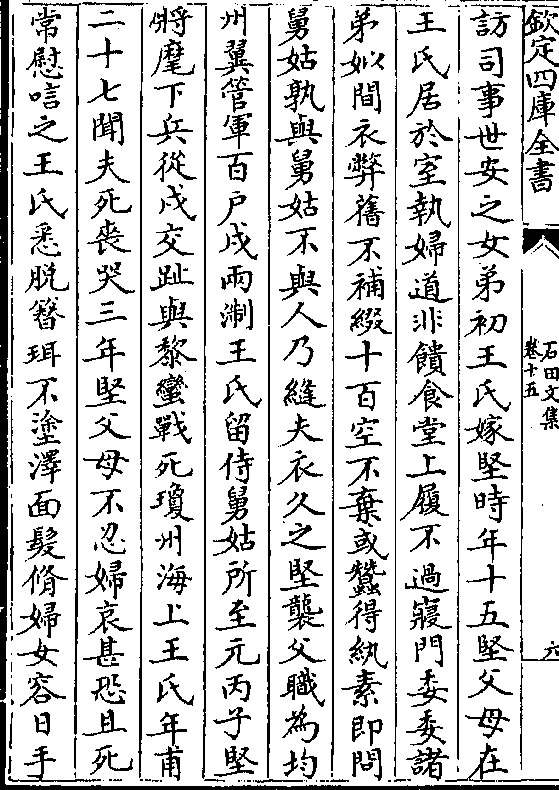 欽定四庫全書
石田文集
卷十五
六
訪司事世安之女弟初王氏嫁堅時年十五堅父母在
王氏居於室執婦道非饋食堂上履不過寢門委委諸
弟姒間衣弊舊不補綴十百空不棄或蠶得紈素即問
舅姑孰與舅姑不與人乃縫夫衣久之堅襲父職為均
州翼管軍百戶戍兩淛王氏留侍舅姑所至元丙子堅
將麾下兵從戍交趾與黎蠻戰死瓊州海上王氏年甫
二十七聞夫死喪哭三年堅父母不忍婦哀甚恐且死
常慰唁之王氏悉脫簪珥不塗澤面髮脩婦女容日手